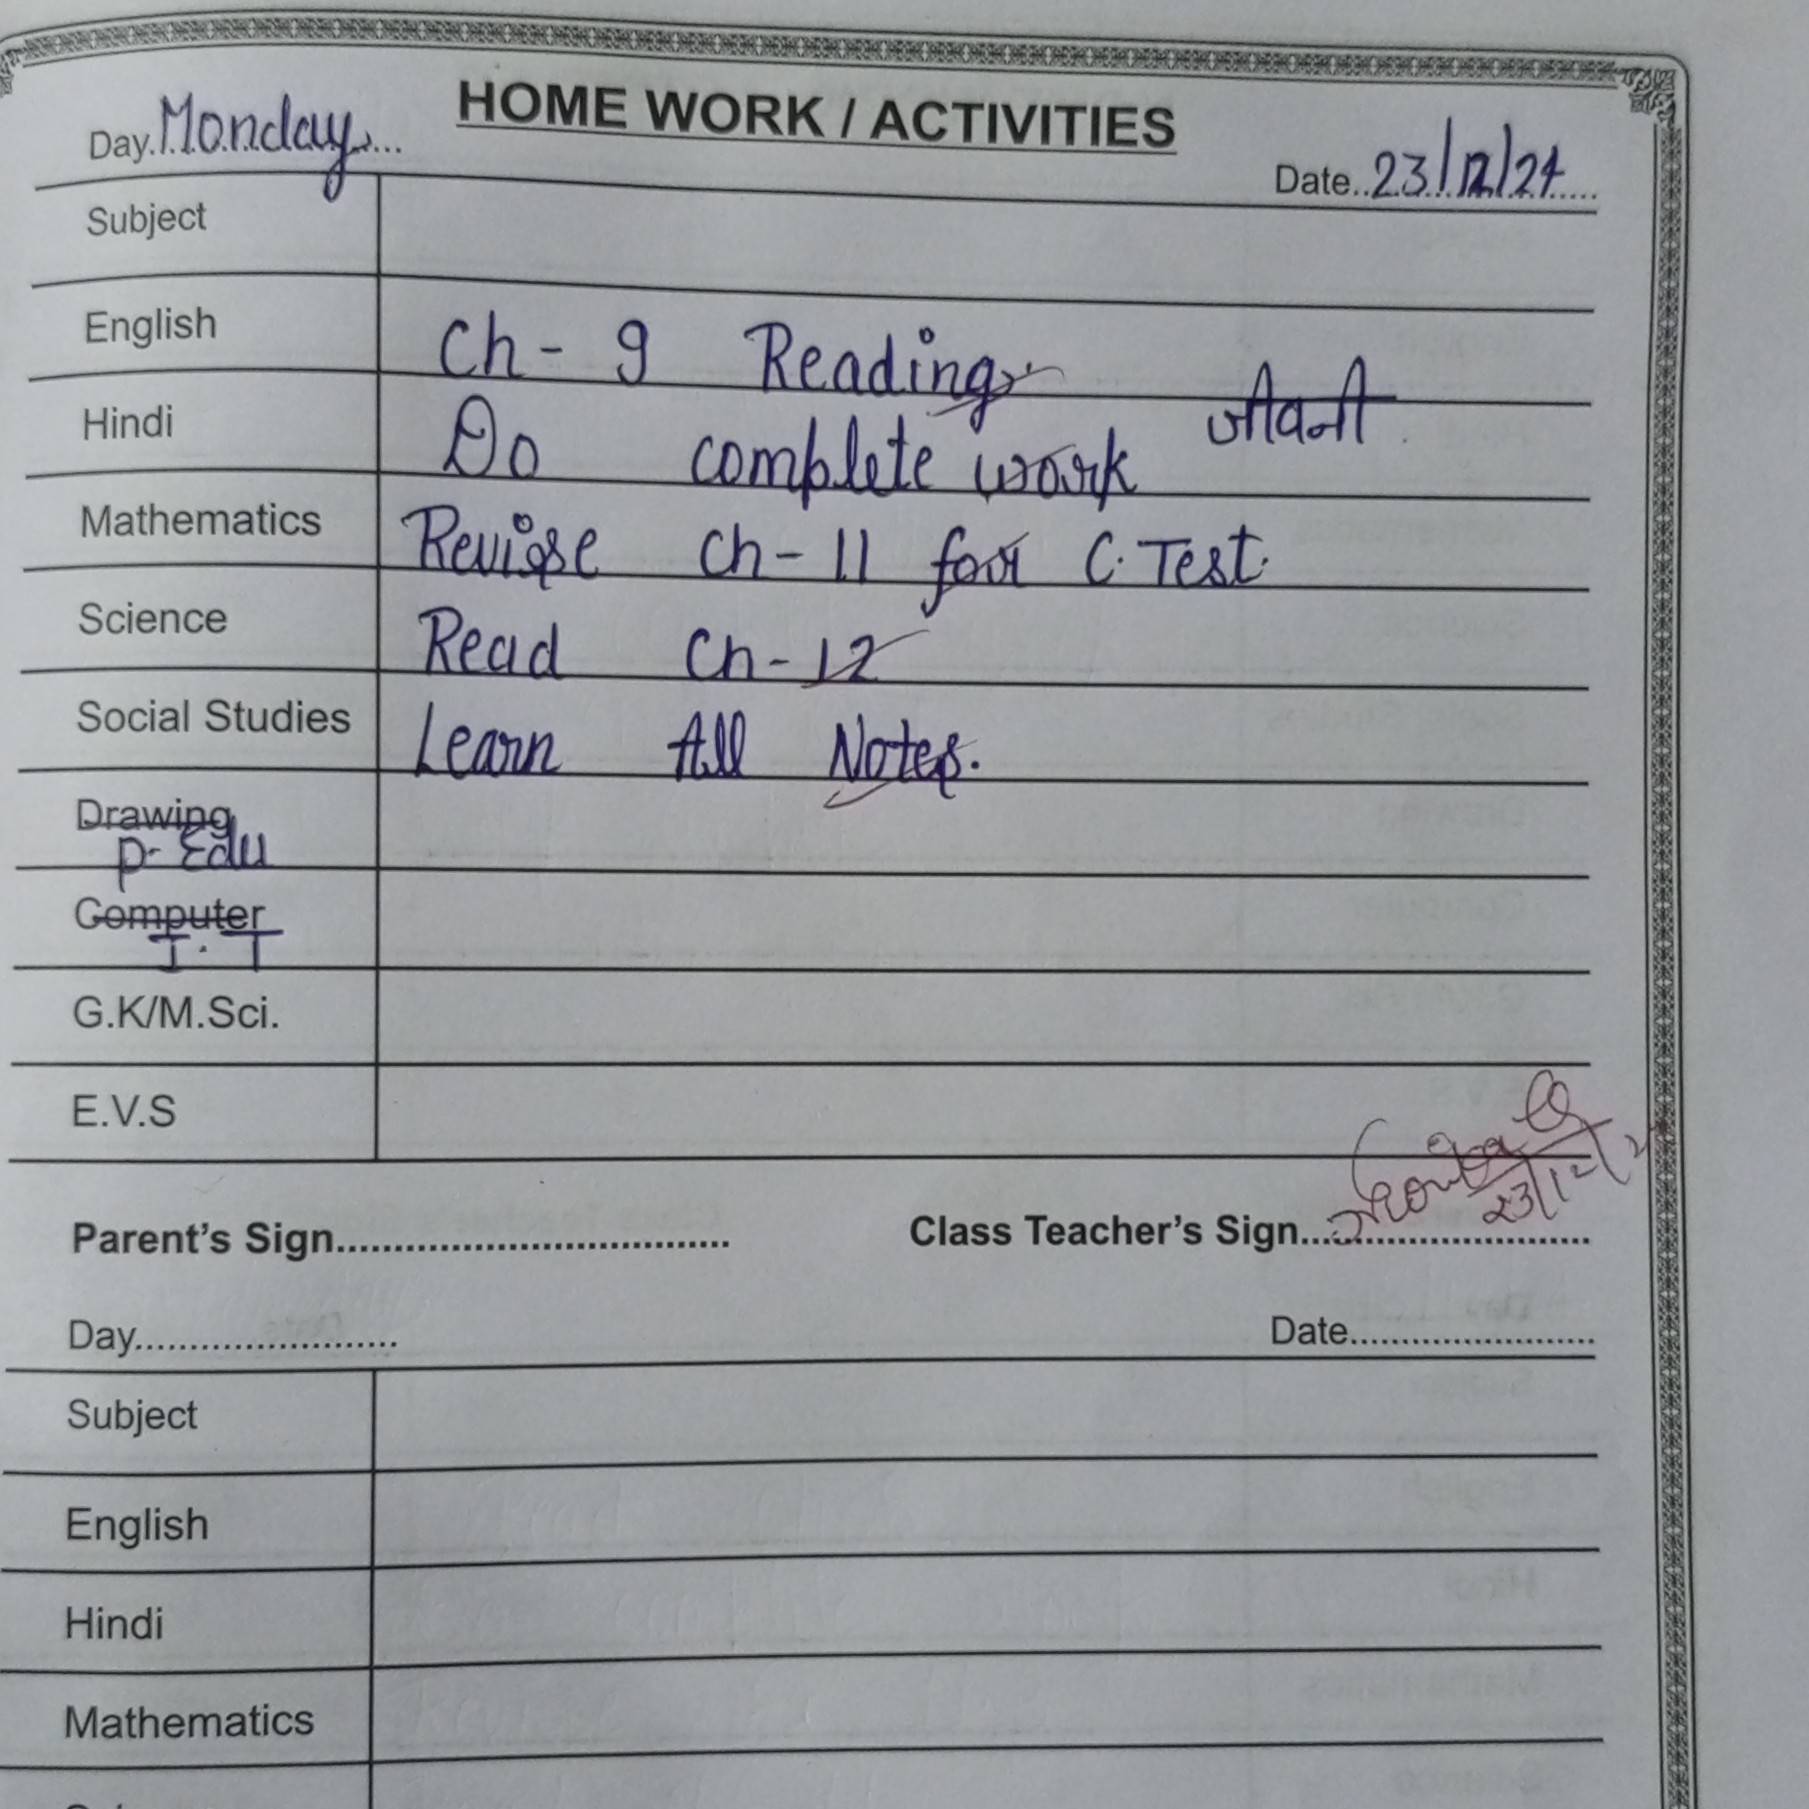 HOME WORK / ACTIVITIES
Day.Monday...
Date..23/12/24....
Subject
English Ch - 9 Reading
Hindi Do complete work जीवनी
Mathematics Revise Ch - 11 for C. Test.
Science Read Ch - 12
Social Studies Learn All Notes.
Drawing
P. Edu
Computer
I. T
G.K/M.Sci.
E.V.S
23/12/2
Parent's Sign.................................. Class Teacher's Sign..............................
Day........................ Date........................
Subject
English
Hindi
Mathematics